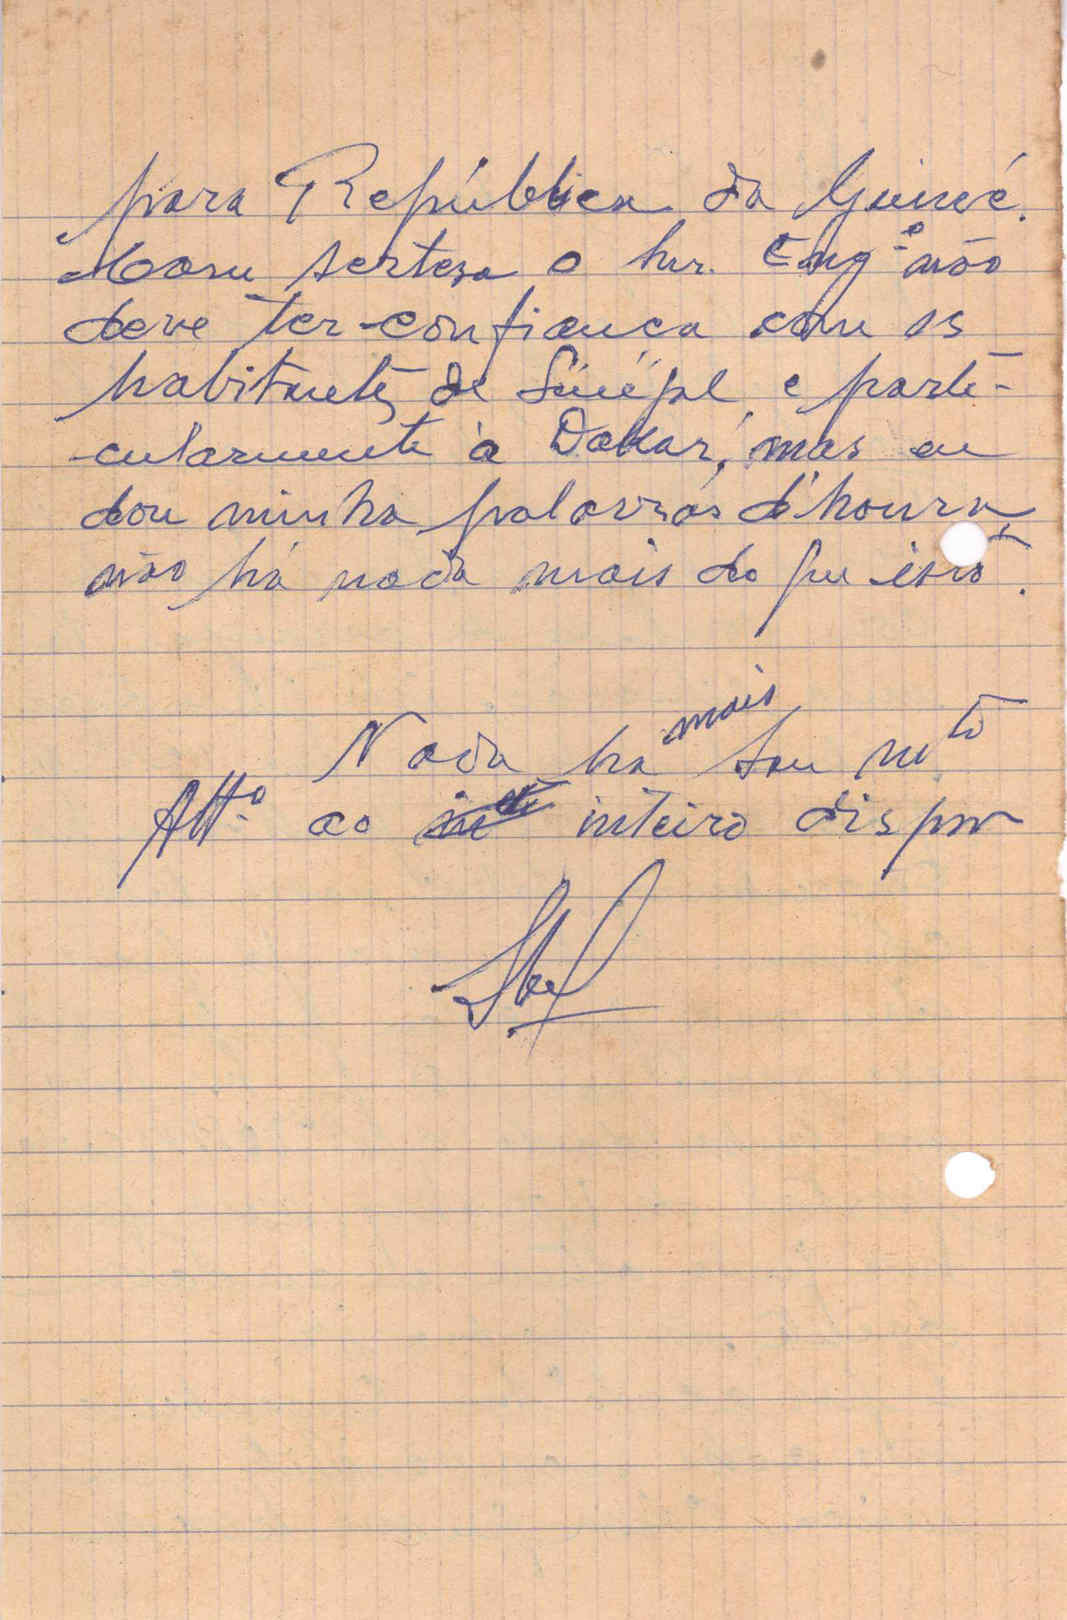 para República da Guiné.
Com serteza o snr. Engº não
deve ter confiança com os
habitantes de Sénégal e parti-
cularmente à Dakar, mas eu
dou minha palavras d'honra
não há nada mais do que isso.
Nada há mais sou mtо
Attº ao inteiro dispor